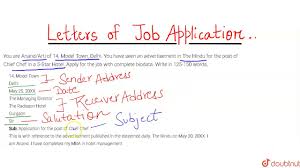 Letters of Job Application..
You are Anand/Arti of 14, Model Town, Delhi. You have seen an advertisement in The Hindu for the post of
Chef in a 5-Star Hotel. Apply for the job with complete biodata. Write in 125-150 words.
14, Model Town } Sender Address
Delhi
May 25, 20XX } → Date
The Managing Director } Receiver Address
The Radisson
Gurgaon
Sir → Salutation → Subject
Sub: Application for the post of
This is with reference to the advertisement published in the esteemed daily, The Hindu on May 20, 20XX. I
am Anand. I have completed my MBA in hotel management
doubtnut